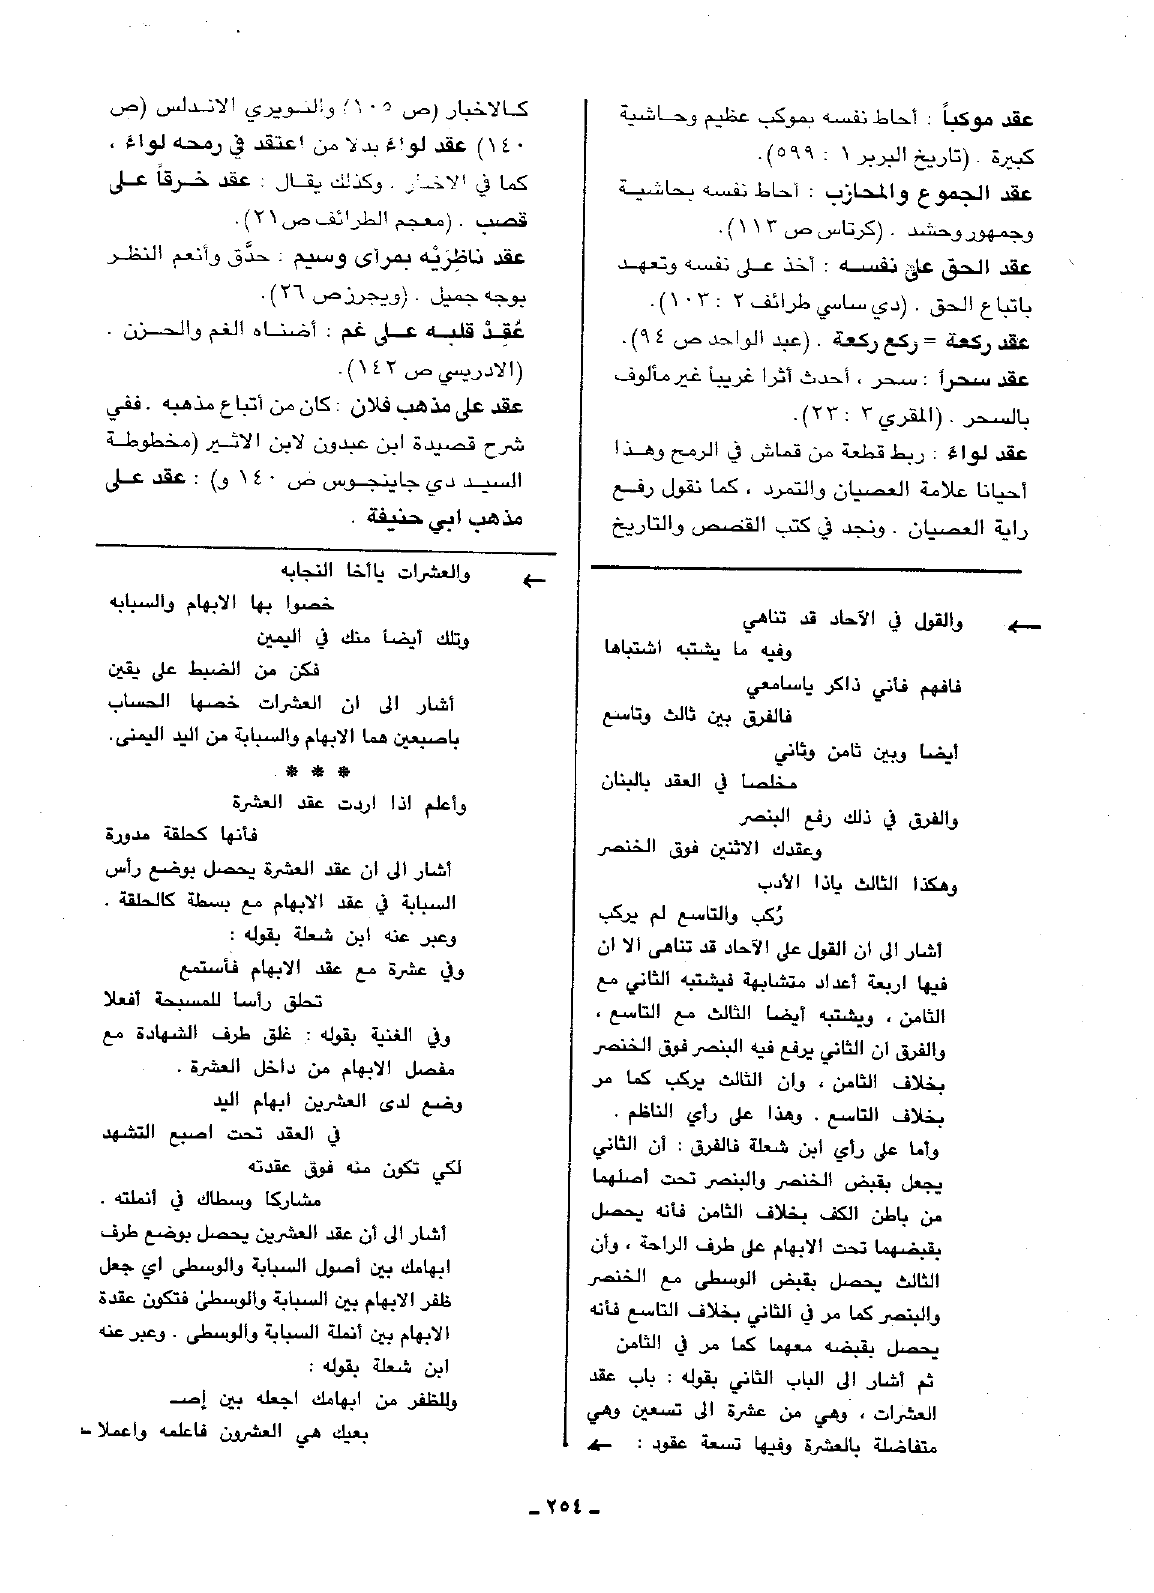 عقد موكباً : أحاط نفسه بموكب عظيم وحاشية
كبيرة . (تاريخ البربر ١ : ٥٩٩).
عقد الجموع والمحازب : أحاط نفسه بحاشية
وجمهور وحشد . (كرتاس ص ١١٣).
عقد الحق على نفسه : أخذ على نفسه وتعهد
باتباع الحق . (دي ساسي طرائف ٢ : ١٠٣).
عقد ركعة = ركع ركعة . (عبد الواحد ص ٩٤).
عقد سحراً : سحر ، أحدث أثرا غريباً غير مألوف
بالسحر . (المقري ٣ : ٢٣).
عقد لواء : ربط قطعة من قماش في الرمح وهذا
أحيانا علامة العصيان والتمرد ، كما نقول رفع
راية العصيان . ونجد في كتب القصص والتاريخ
كالاخبار (ص ١٠٥) والنويري الاندلس (ص
١٤٠) عقد لواء بدلا من اعتقد في رمحه لواء ،
كما في الاخبار . وكذلك يقال : عقد خرقاً على
قصب . (معجم الطرائف ص ٢١).
عقد ناظريْه بمرأى وسيم : حدَّق وأنعم النظر
بوجه جميل . (ويجرز ص ٢٦).
عُقِدْ قلبه على غم : أضناه الغم والحزن .
(الادريسي ص ١٤٢).
عقد على مذهب فلان : كان من أتباع مذهبه . ففي
شرح قصيدة ابن عبدون لابن الاثير (مخطوطة
السيد دي جاينجوس ص ١٤٠ و) : عقد على
مذهب ابي حنيفة .
← والقول في الآحاد قد تناهي
وفيه ما يشتبه اشتباها
فافهم فأني ذاكر ياسامعي
فالفرق بين ثالث وتاسع
أيضا وبين ثامن وثاني
مخلصا في العقد بالبنان
والفرق في ذلك رفع البنصر
وعقدك الاثنين فوق الخنصر
وهكذا الثالث ياذا الأدب
رُكب والتاسع لم يركب
أشار الى ان القول على الآحاد قد تناهى الا ان
فيها اربعة أعداد متشابهة فيشتبه الثاني مع
الثامن ، ويشتبه أيضا الثالث مع التاسع ،
والفرق ان الثاني يرفع فيه البنصر فوق الخنصر
بخلاف الثامن ، وان الثالث يركب كما مر
بخلاف التاسع . وهذا على رأي الناظم .
وأما على رأي ابن شعلة فالفرق : أن الثاني
يجعل بقبض الخنصر والبنصر تحت أصلهما
من باطن الكف بخلاف الثامن فأنه يحصل
بقبضهما تحت الابهام على طرف الراحة ، وأن
الثالث يحصل بقبض الوسطى مع الخنصر
والبنصر كما مر في الثاني بخلاف التاسع فأنه
يحصل بقبضه معهما كما مر في الثامن
ثم أشار الى الباب الثاني بقوله : باب عقد
العشرات ، وهي من عشرة الى تسعين وهي
متفاضلة بالعشرة وفيها تسعة عقود : ←
← والعشرات ياأخا النجابه
خصوا بها الابهام والسبابه
وتلك أيضا منك في اليمين
فكن من الضبط على يقين
أشار الى ان العشرات خصها الحساب
باصبعين هما الابهام والسبابة من اليد اليمنى.
* * *
وأعلم اذا اردت عقد العشرة
فأنها كحلقة مدورة
أشار الى ان عقد العشرة يحصل بوضع رأس
السبابة في عقد الابهام مع بسطة كالحلقة .
وعبر عنه ابن شعلة بقوله :
وفي عشرة مع عقد الابهام فأستمع
تحلق رأسا للمسبحة أفعلا
وفي الغنية بقوله : غلق طرف الشهادة مع
مفصل الابهام من داخل العشرة .
وضع لدى العشرين ابهام اليد
في العقد تحت اصبع التشهد
لكي تكون منه فوق عقدته
مشاركا وسطاك في أنملته .
أشار الى أن عقد العشرين يحصل بوضع طرف
ابهامك بين أصول السبابة والوسطى اي جعل
ظفر الابهام بين السبابة والوسطىٰ فتكون عقدة
الابهام بين أنملة السبابة والوسطى . وعبر عنه
ابن شعلة بقوله :
وللظفر من ابهامك اجعله بين إصـ
بعيك هي العشرون فاعلمه واعملا ←
ـ ٢٥٤ ـ